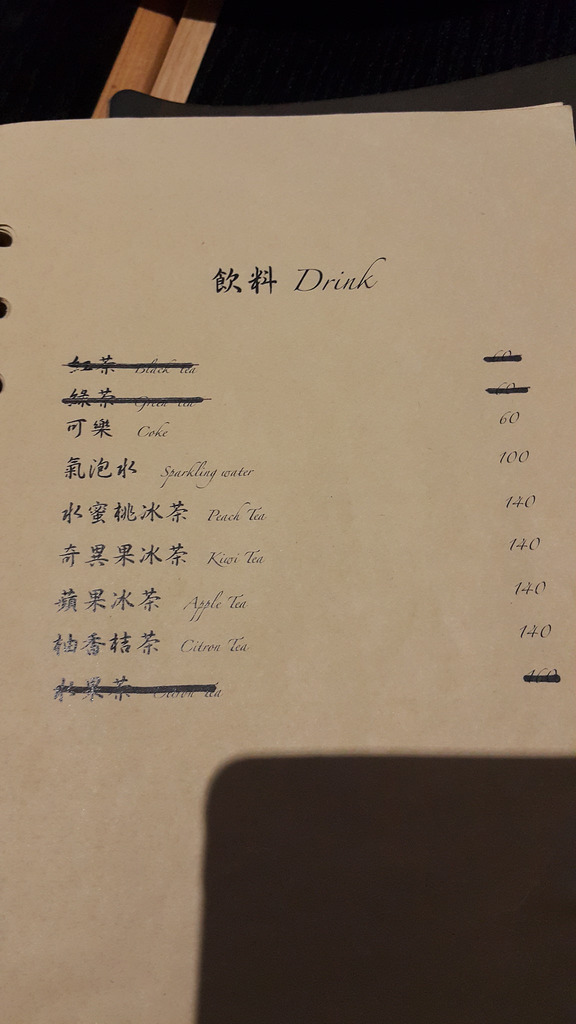 飲料 Drink
紅茶 Black tea 60
綠茶 Green tea 60
可樂 Coke 60
氣泡水 Sparkling water 100
水蜜桃冰茶 Peach Tea 140
奇異果冰茶 Kiwi Tea 140
蘋果冰茶 Apple Tea 140
柚香桔茶 Citron Tea 140
水果茶 Citron Tea 160